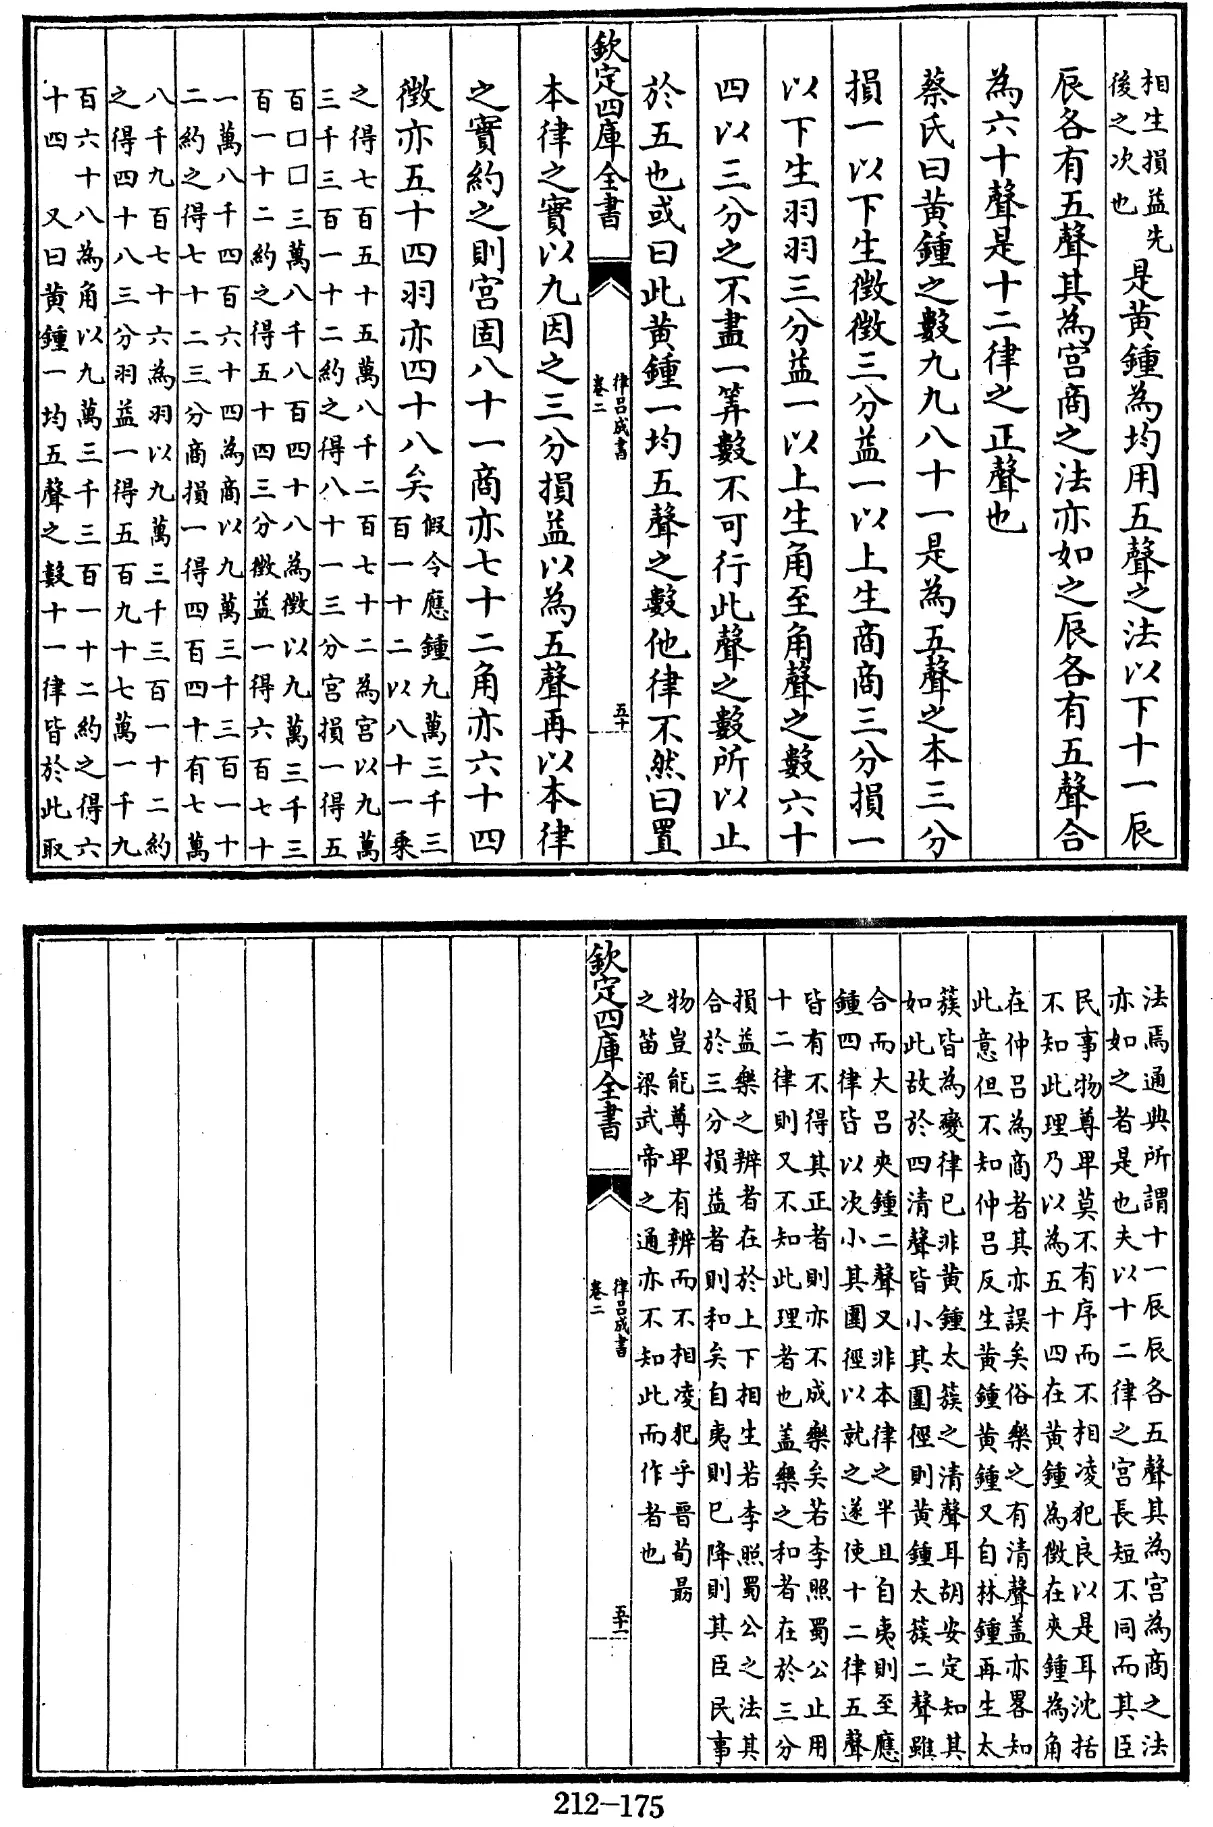 相生損益先
後之次也
是黄鍾為均用五聲之法以下十一辰
辰各有五聲其為宫商之法亦如之辰各有五聲合
為六十聲是十二律之正聲也
蔡氏曰黄鍾之數九九八十一是為五聲之本三分
損一以下生徴徴三分益一以上生商商三分損一
以下生羽羽三分益一以上生角至角聲之數六十
四以三分之不盡一筭數不可行此聲之數所以止
於五也或曰此黄鍾一均五聲之數他律不然曰置
欽定四庫全書
律吕成書
卷二
五十
本律之實以九因之三分損益以為五聲再以本律
之實約之則宫固八十一商亦七十二角亦六十四
徴亦五十四羽亦四十八矣
假令應鍾九萬三千三
百一十二以八十一乘
之得七百五十五萬八千二百七十二為宫以九萬
三千三百一十二約之得八十一三分宫損一得五
百口口三萬八千八百四十八為徴以九萬三千三
百一十二約之得五十四三分徴益一得六百七十
一萬八千四百六十四為商以九萬三千三百一十
二約之得七十二三分商損一得四百四十有七萬
八千九百七十六為羽以九萬三千三百一十二約
之得四十八三分羽益一得五百九十七萬一千九
百六十八為角以九萬三千三百一十二約之得六
十四 又曰黄鍾一均五聲之數十一律皆於此取
法焉通典所謂十一辰辰各五聲其為宫為商之法
亦如之者是也夫以十二律之宫長短不同而其臣
民事物尊卑莫不有序而不相凌犯良以是耳沈括
不知此理乃以為五十四在黄鍾為徴在夾鍾為角
在仲吕為商者其亦誤矣俗樂之有清聲盖亦畧知
此意但不知仲吕反生黄鍾黄鍾又自林鍾再生太
簇皆為變律已非黄鍾太簇之清聲耳胡安定知其
如此故於四清聲皆小其圍徑則黄鍾太簇二聲雖
合而大吕夾鍾二聲又非本律之半且自夷則至應
鍾四律皆以次小其圍徑以就之遂使十二律五聲
皆有不得其正者則亦不成樂矣若李照蜀公止用
十二律則又不知此理者也盖樂之和者在於三分
損益樂之辨者在於上下相生若李照蜀公之法其
合於三分損益者則和矣自夷則已降則其臣民事
物豈能尊卑有辨而不相凌犯乎晋荀朂
之笛梁武帝之通亦不知此而作者也
欽定四庫全書
律吕成書
卷二
五十一
212-175